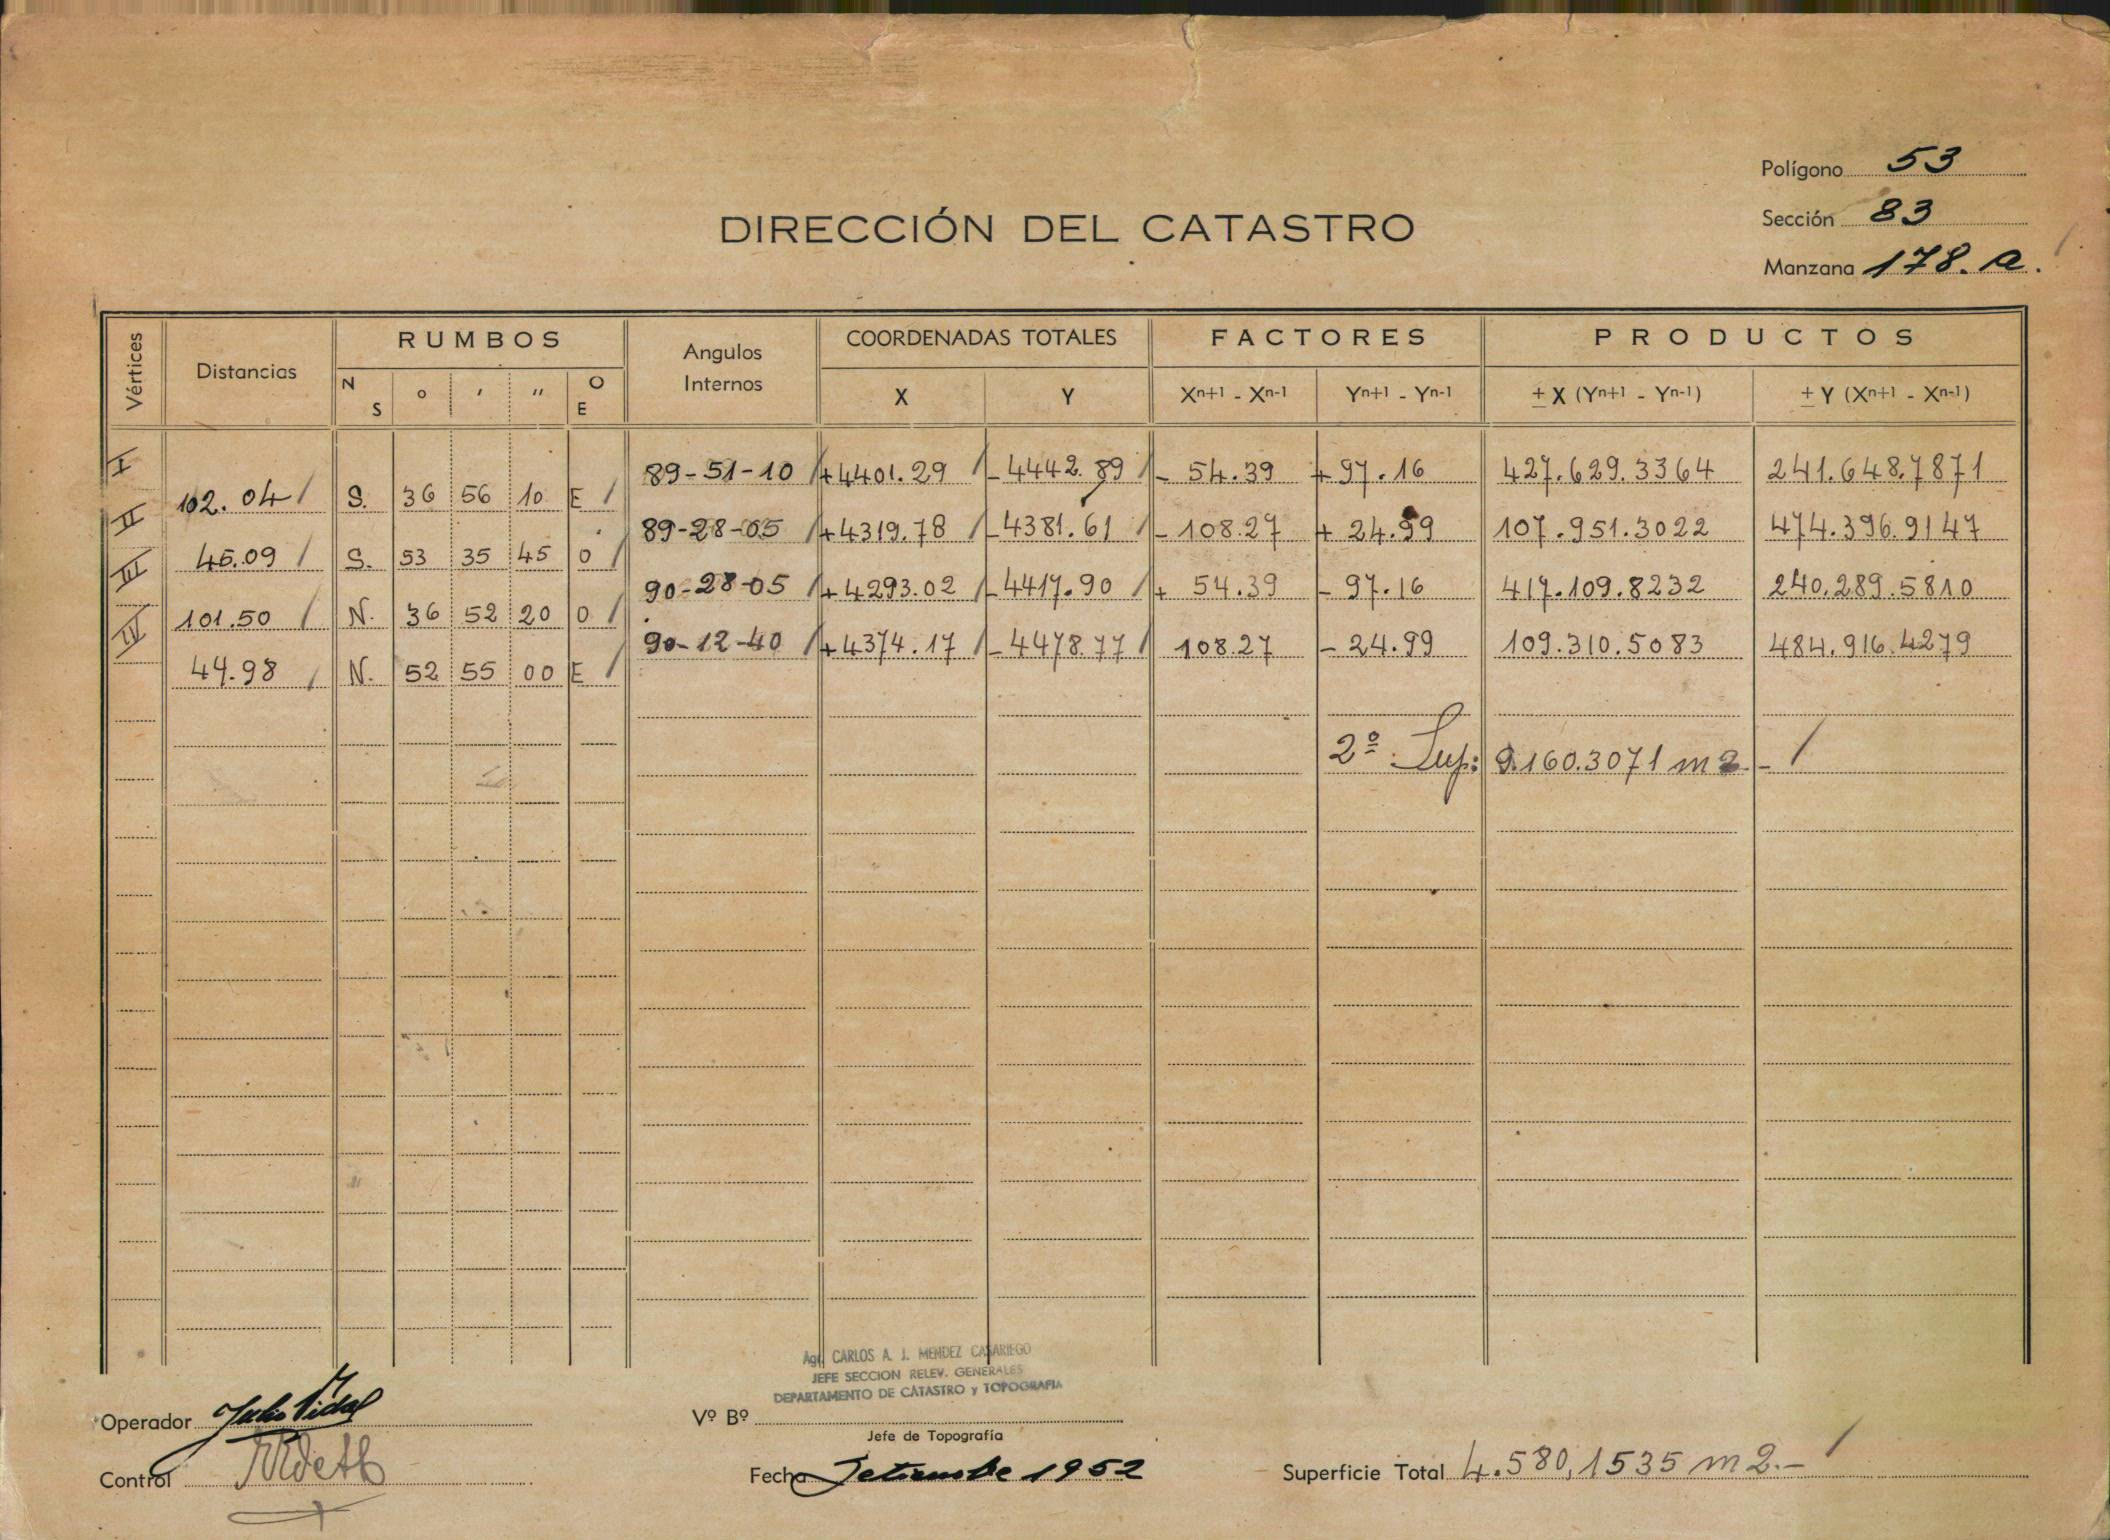 Polígono 53
Sección 83
DIRECCIÓN DEL CATASTRO
Manzana 178.a.
Vértices Distancias RUMBOS Angulos Internos COORDENADAS TOTALES FACTORES PRODUCTOS
N S o ' " O E X Y Xn+1 - Xn-1 Yn+1 - Yn-1 ± X (Yn+1 - Yn-1) ± Y (Xn+1 - Xn-1)
I 89-51-10 +4401.29 -4442.89 -54.39 +97.16 427.629.3364 241.648.7871
102.04 S. 36 56 10 E
II 89-28-05 +4319.78 -4381.61 -108.27 +24.99 107.951.3022 474.396.9147
45.09 S. 53 35 45 O
III 90-28-05 +4293.02 -4417.90 +54.39 -97.16 417.109.8232 240.289.5810
101.50 N. 36 52 20 O
IV 90-12-40 +4374.17 -4478.77 108.27 -24.99 109.310.5083 484.916.4279
44.98 N. 52 55 00 E
2º Sup: 9.160.3071 m2.-
Agr. CARLOS A. J. MENDEZ CASARIEGO
JEFE SECCION RELEV. GENERALES
DEPARTAMENTO DE CATASTRO y TOPOGRAFIA
Operador Julio Vidal Vº Bº
Jefe de Topografía
Control Fecha Setiembre 1952 Superficie Total 4.580,1535 m2.-